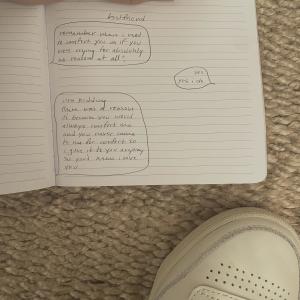 bestfriend
remember when i used
to comfort you as if you
were crying for absolutely
no reason at all?
yes
yes i do
i'm kidding
there was a reason
is because you would
always comfort me
and you never came
to me for comfort so
i give it to you anyway
so you'd know i love
you